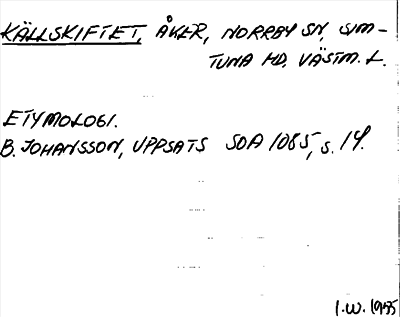 KÄLLSKIFTET, ÅKER, NORRBY SN, SIM-
TUNA HD, VÄSTM. L.
ETYMOLOGI.
B. JOHANSSON, UPPSATS SOA 1085, s. 14.
I.W. 1955